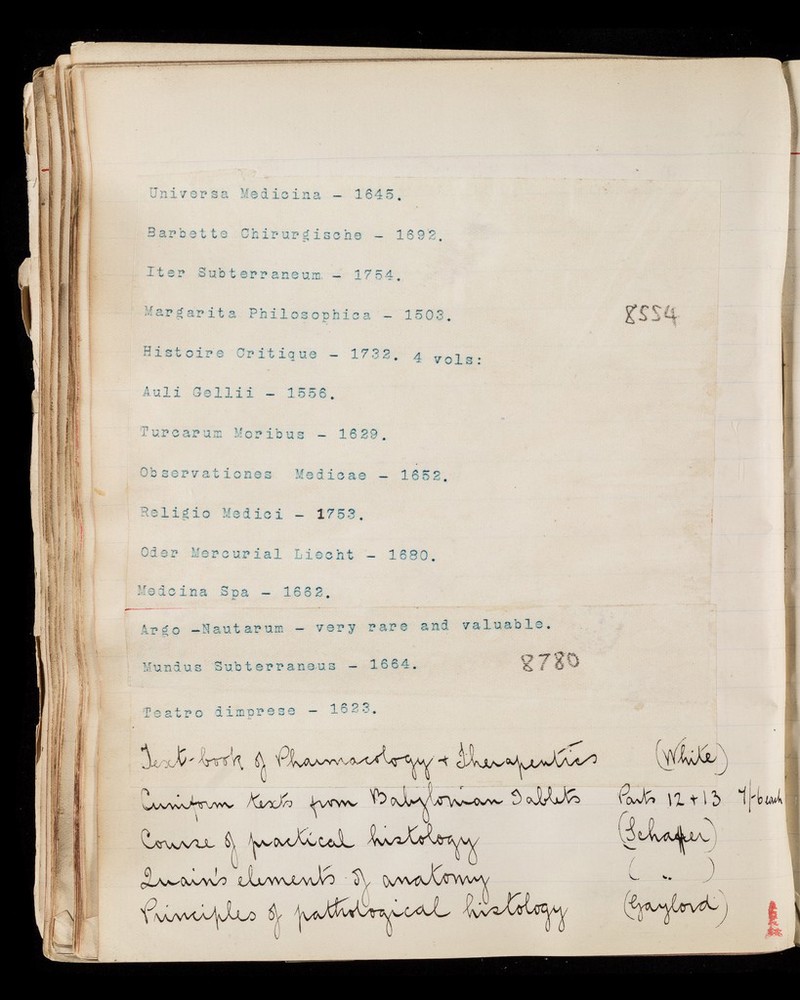 Universa Medicina - 1645.
Barbette Chirurgische - 1692.
Iter Subterraneum - 1754.
Margarita Philosophica - 1503. 8554
Histoire Critique - 1732. 4 vols:
Auli Gellii - 1556.
Turcarum Moribus - 1629.
Observationes Medicae - 1652.
Religio Medici - 1753.
Oder Mercurial Liecht - 1680.
Medcina Spa - 1662.
Argo -Nautarum - very rare and valuable.
Mundus Subterraneus - 1664. 8780
Teatro dimprese - 1623.
Text-book of Pharmacology + Therapeutics (White)
Cuniform texts from Babylonian Tablets Parts 12 + 13 7/-6 each
Course of practical histology (Schaffer)
Quain's elements of anatomy ( " )
Principles of pathological histology (Gaylord)